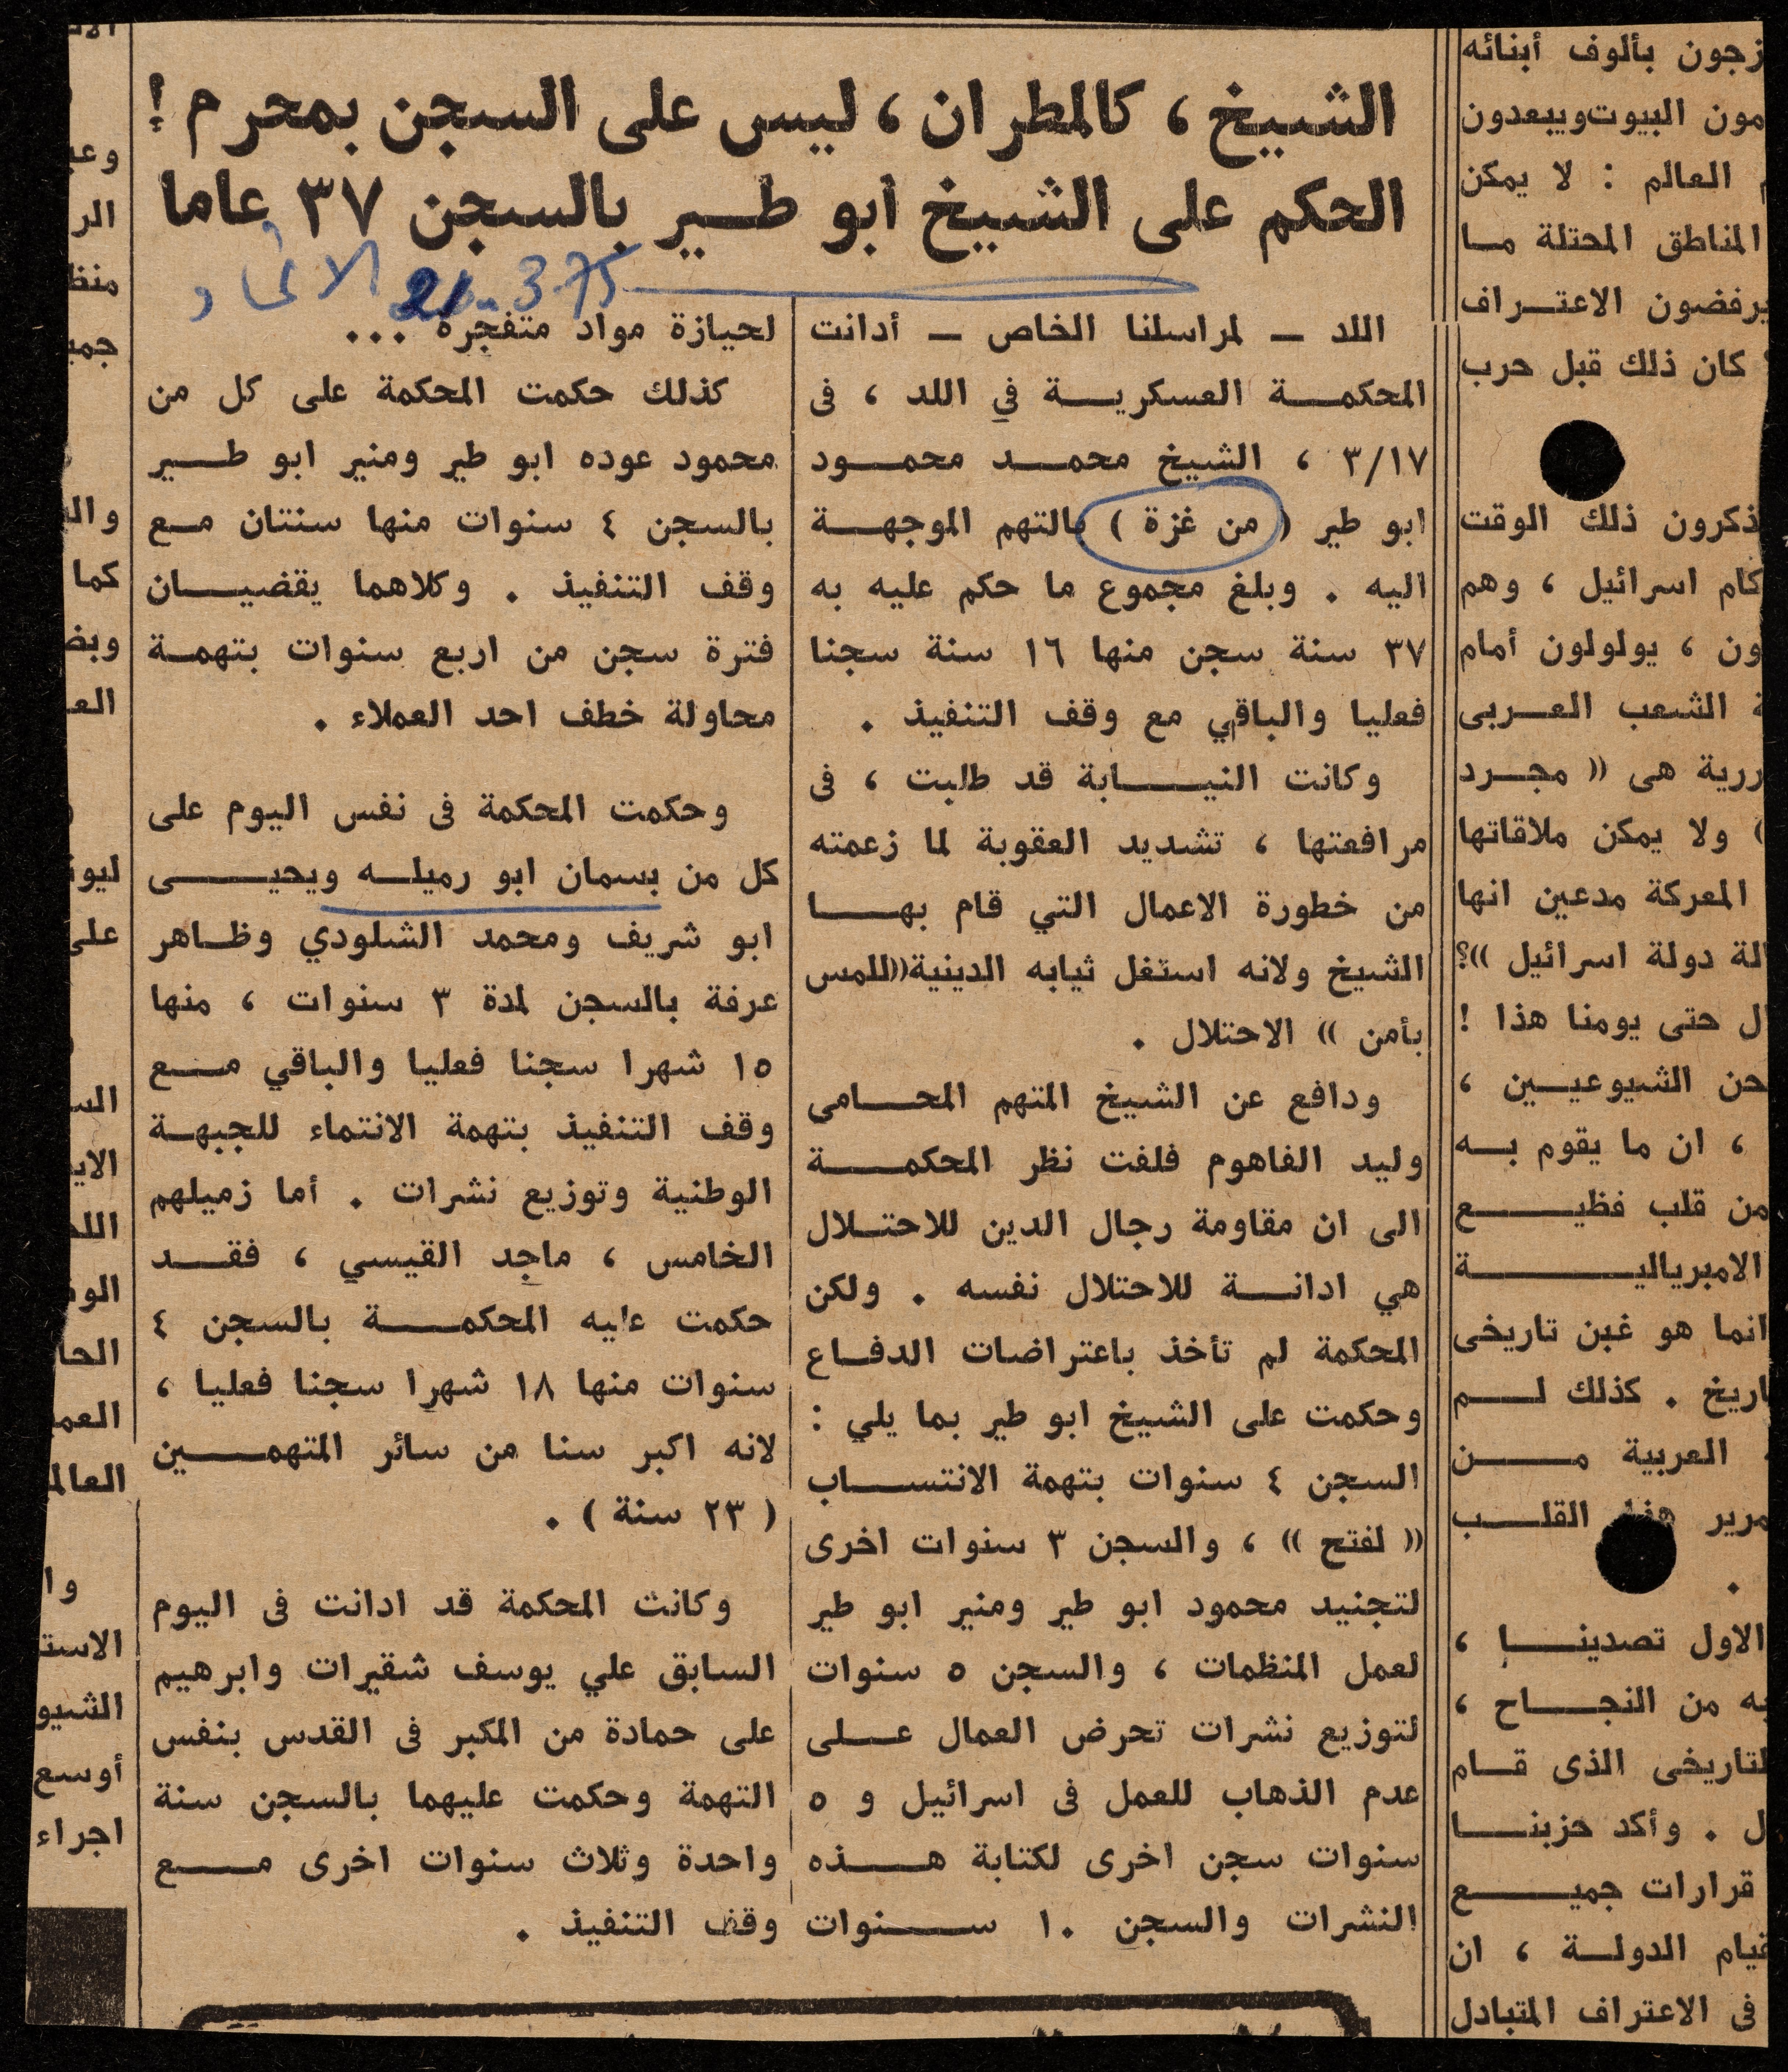 الشيخ ، كالمطران ، ليس على السجن بمحرم !
الحكم على الشيخ ابو طـــير بالسجن ٣٧ عاما
الاتحاد 21.3.75
اللد ــ لمراسلنا الخاص ــ أدانت
المحكمـــة العسكريـــة في اللد ، فى
٣/١٧ ، الشيخ محمـــد محمـــود
ابو طير ( من غزة ) بالتهم الموجهـــة
اليه . وبلغ مجموع ما حكم عليه به
٣٧ سنة سجن منها ١٦ سنة سجنا
فعليا والباقي مع وقف التنفيذ .
وكانت النيـــابة قد طلبت ، فى
مرافعتها ، تشديد العقوبة لما زعمته
من خطورة الاعمال التي قام بهـــا
الشيخ ولانه استغل ثيابه الدينية((للمس
بأمن )) الاحتلال .
ودافع عن الشيخ المتهم المحـــامى
وليد الفاهوم فلفت نظر المحكمـــة
الى ان مقاومة رجال الدين للاحتـــلال
هي ادانـــة للاحتلال نفسه . ولكن
المحكمة لم تأخذ باعتراضات الدفـــاع
وحكمت على الشيخ ابو طير بما يلي :
السجن ٤ سنوات بتهمة الانتســـاب
(( لفتح )) ، والسجن ٣ سنوات اخرى
لتجنيد محمود ابو طير ومنير ابو طير
لعمل المنظمات ، والسجن ٥ سنوات
لتوزيع نشرات تحرض العمال عـــلى
عدم الذهاب للعمل فى اسرائيل و ٥
سنوات سجن اخرى لكتابة هـــذه
النشرات والسجن ١٠ ســـنوات
لحيازة مواد متفجرة ...
كذلك حكمت المحكمة على كل من
محمود عوده ابو طير ومنير ابو طـــير
بالسجن ٤ سنوات منها سنتان مـــع
وقف التنفيذ . وكلاهما يقضيـــان
فترة سجن من اربع سنوات بتهمـــة
محاولة خطف احد العملاء .
وحكمت المحكمة فى نفس اليوم على
كل من بسمان ابو رميلـــه ويحيـــى
ابو شريف ومحمد الشلودي وظـــاهر
عرفة بالسجن لمدة ٣ سنوات ، منها
١٥ شهرا سجنا فعليا والباقي مـــع
وقف التنفيذ بتهمة الانتماء للجبهـــة
الوطنية وتوزيع نشرات . أما زميلهم
الخامس ، ماجد القيسي ، فقـــد
حكمت عليه المحكمـــة بالسجن ٤
سنوات منها ١٨ شهرا سجنا فعليا ،
لانه اكبر سنا من سائر المتهمـــين
( ٢٣ سنة ) .
وكانت المحكمة قد ادانت فى اليوم
السابق علي يوسف شقيرات وابرهيم
على حمادة من المكبر فى القدس بنفس
التهمة وحكمت عليهما بالسجن سنة
واحدة وثلاث سنوات اخرى مـــع
وقف التنفيذ .
زجون بألوف أبنائه
مون البيوت ويبعدون
العالم : لا يمكن
المناطق المحتلة مـــا
يرفضون الاعتـــراف
كان ذلك قبل حرب
ذكرون ذلك الوقت
كام اسرائيل ، وهم
ون ، يولولون أمام
الشعب العـــربى
ررية هى (( مجـــرد
) ولا يمكن ملاقاتها
المعركة مدعين انها
الة دولة اسرائيل ))؟
ال حتى يومنا هذا !
حن الشيوعيـــين ،
، ان ما يقوم بـــه
من قلب فظيـــع
الامبرياليـــة
انما هو غبن تاريخى
اريخ . كذلك لـــم
العربية مـــن
مرير هذا القلـــب
.
الاول تصدينـــا ،
به من النجـــاح ،
لتاريخى الذى قـــام
ل . وأكد حزبنـــا
قرارات جميـــع
قيام الدولـــة ، ان
فى الاعتراف المتبادل
وعـ
الر
منظ
جمـ
كما
وبض
العـ
ليو
على
السـ
الايـ
اللد
الحا
العمـ
العالم
وا
الاستـ
الشيو
أوسع
اجراء